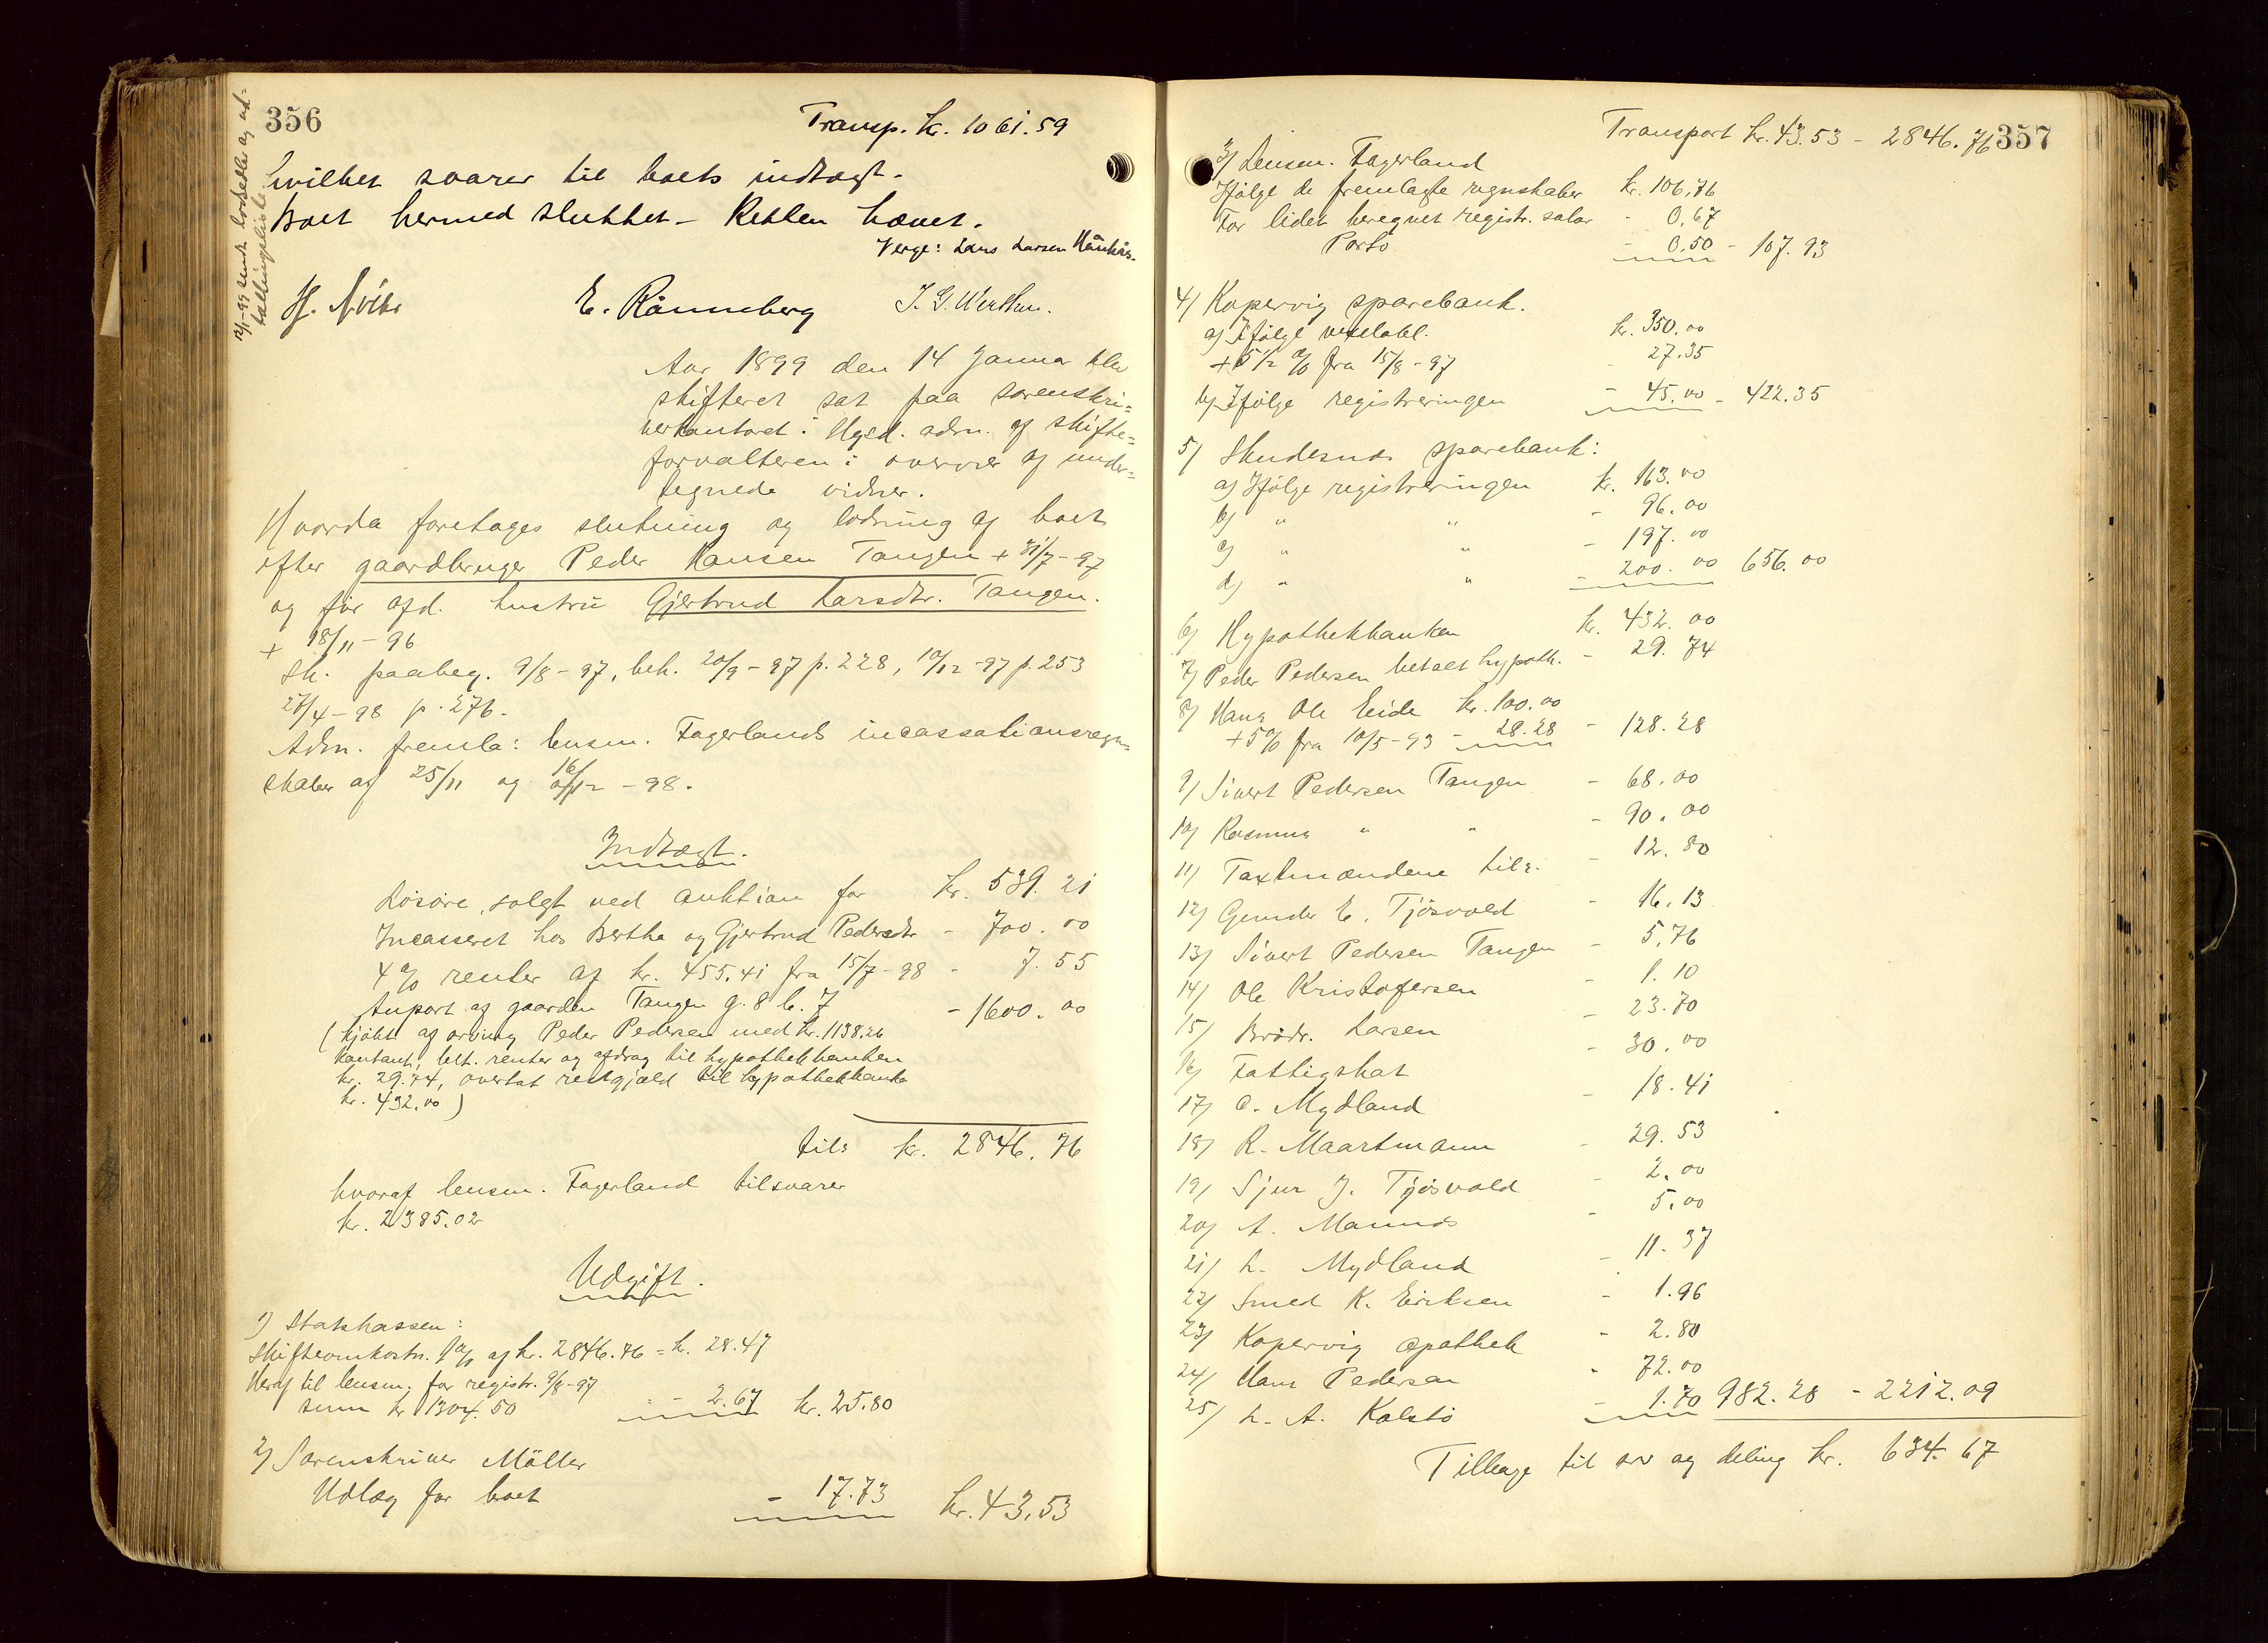 356
Transp. kr. 1061.59
hvilket svarer til boets indtægt.
Boet hermed sluttet – Retten hævet.
Verge: Lars Larsen
E. Rånneberg
Aar 1899 den 14 Januar blev
skifteret sat paa sorenskri=
verkontoret i Hgsd. adm. af skifte=
forvalteren i overvær af under=
tegnede vidner.
Hvorda foretages slutning og lodning af boet
efter gaardbruger Peder Hansen Tangen + 31/7-97
og før afd. hustru Gjertrud Larsdtr. Tangen.
+ 18/11-96
Sk. paabeg. 9/8-97, beh. 20/9-97 p. 228, 10/12-97 p. 253
27/4-98 p. 276.
Adm. fremla: lensm. Fagerlands incassationsregn=
skaber af 25/11 og 16/12-98.
Indtægt.
Løsøre, solgt ved auktion for kr. 539.21
Incasseret hos Bertha og Gjertrud Pedersdtr - 700.00
4 % renter af kr. 455.41 fra 15/7-98 - 7.55
Anpart af gaarden Tangen g. 8 b. 7 - 1600.00
(kjøbt af arving Peder Pedersen med kr. 1138.26
kontant, bet. renter og afdrag til hypothekbanken
kr. 29.74, overtat restgjæld til hypothekbanken
kr. 432.00)
tils kr. 2846.76
hvoraf lensm. Fagerland tilsvarer
kr. 2385.02
Udgift.
1) Statskassen:
Skifteomkostn. 1 % af kr. 2846.76 = kr. 28.47
Heraf til lensm. for registr. 9/8-97
sum kr 1304.50 - 2.67 kr. 25.80
2) Sorenskriver Möller
Udlæg for boet - 17.73 kr. 43.53
357
Transport kr. 43.53 - 2846.76
3) Lensm. Fagerland
Ifølge de fremlagte regnskaber kr. 106.76
For lidet beregnet registr. salær - 0.67
Porto - 0.50 - 107.93
4) Kopervig sparebank.
a) Ifølge vexelobl. kr. 350.00
+ 5 1/2 % fra 15/8-97 - 27.35
b) Ifølge registreringen - 45.00 - 422.35
5) Skudesnes sparebank:
a) Ifølge registreringen kr. 163.00
b) " " - 96.00
c) " " - 197.00
d) " " - 200.00 656.00
6) Hypothekbanken kr. 432.00
7) Peder Pedersen betalt hypoth. - 29.74
8) Hans Ole Eide kr. 100.00
+ 5 % fra 10/5-93 - 28.28 - 128.28
9) Sivert Pedersen Tangen - 68.00
10) Rasmus " " - 90.00
11) Taxtmændene tils. - 12.80
12) Gunder E. Tjösvold - 16.13
13) Sivert Pedersen Tangen - 5.76
14) Ole Kristofersen - 1.10
15) Brödr. Larsen - 23.70
16) Fattigskat - 30.00
17) C. Mydland - 18.41
18) R. Maartmann - 29.53
19) Sjur J. Tjösvold - 2.00
20) A. Mannes - 5.00
21) L. Mydland - 11.37
22) Smed K. Eriksen - 1.96
23) Kopervig apothek - 2.80
24) Hans Pedersen - 72.00
25) L. A. Kolstø - 1.70 982.28 - 2212.09
Tilbage til arv og deling kr. 634.67